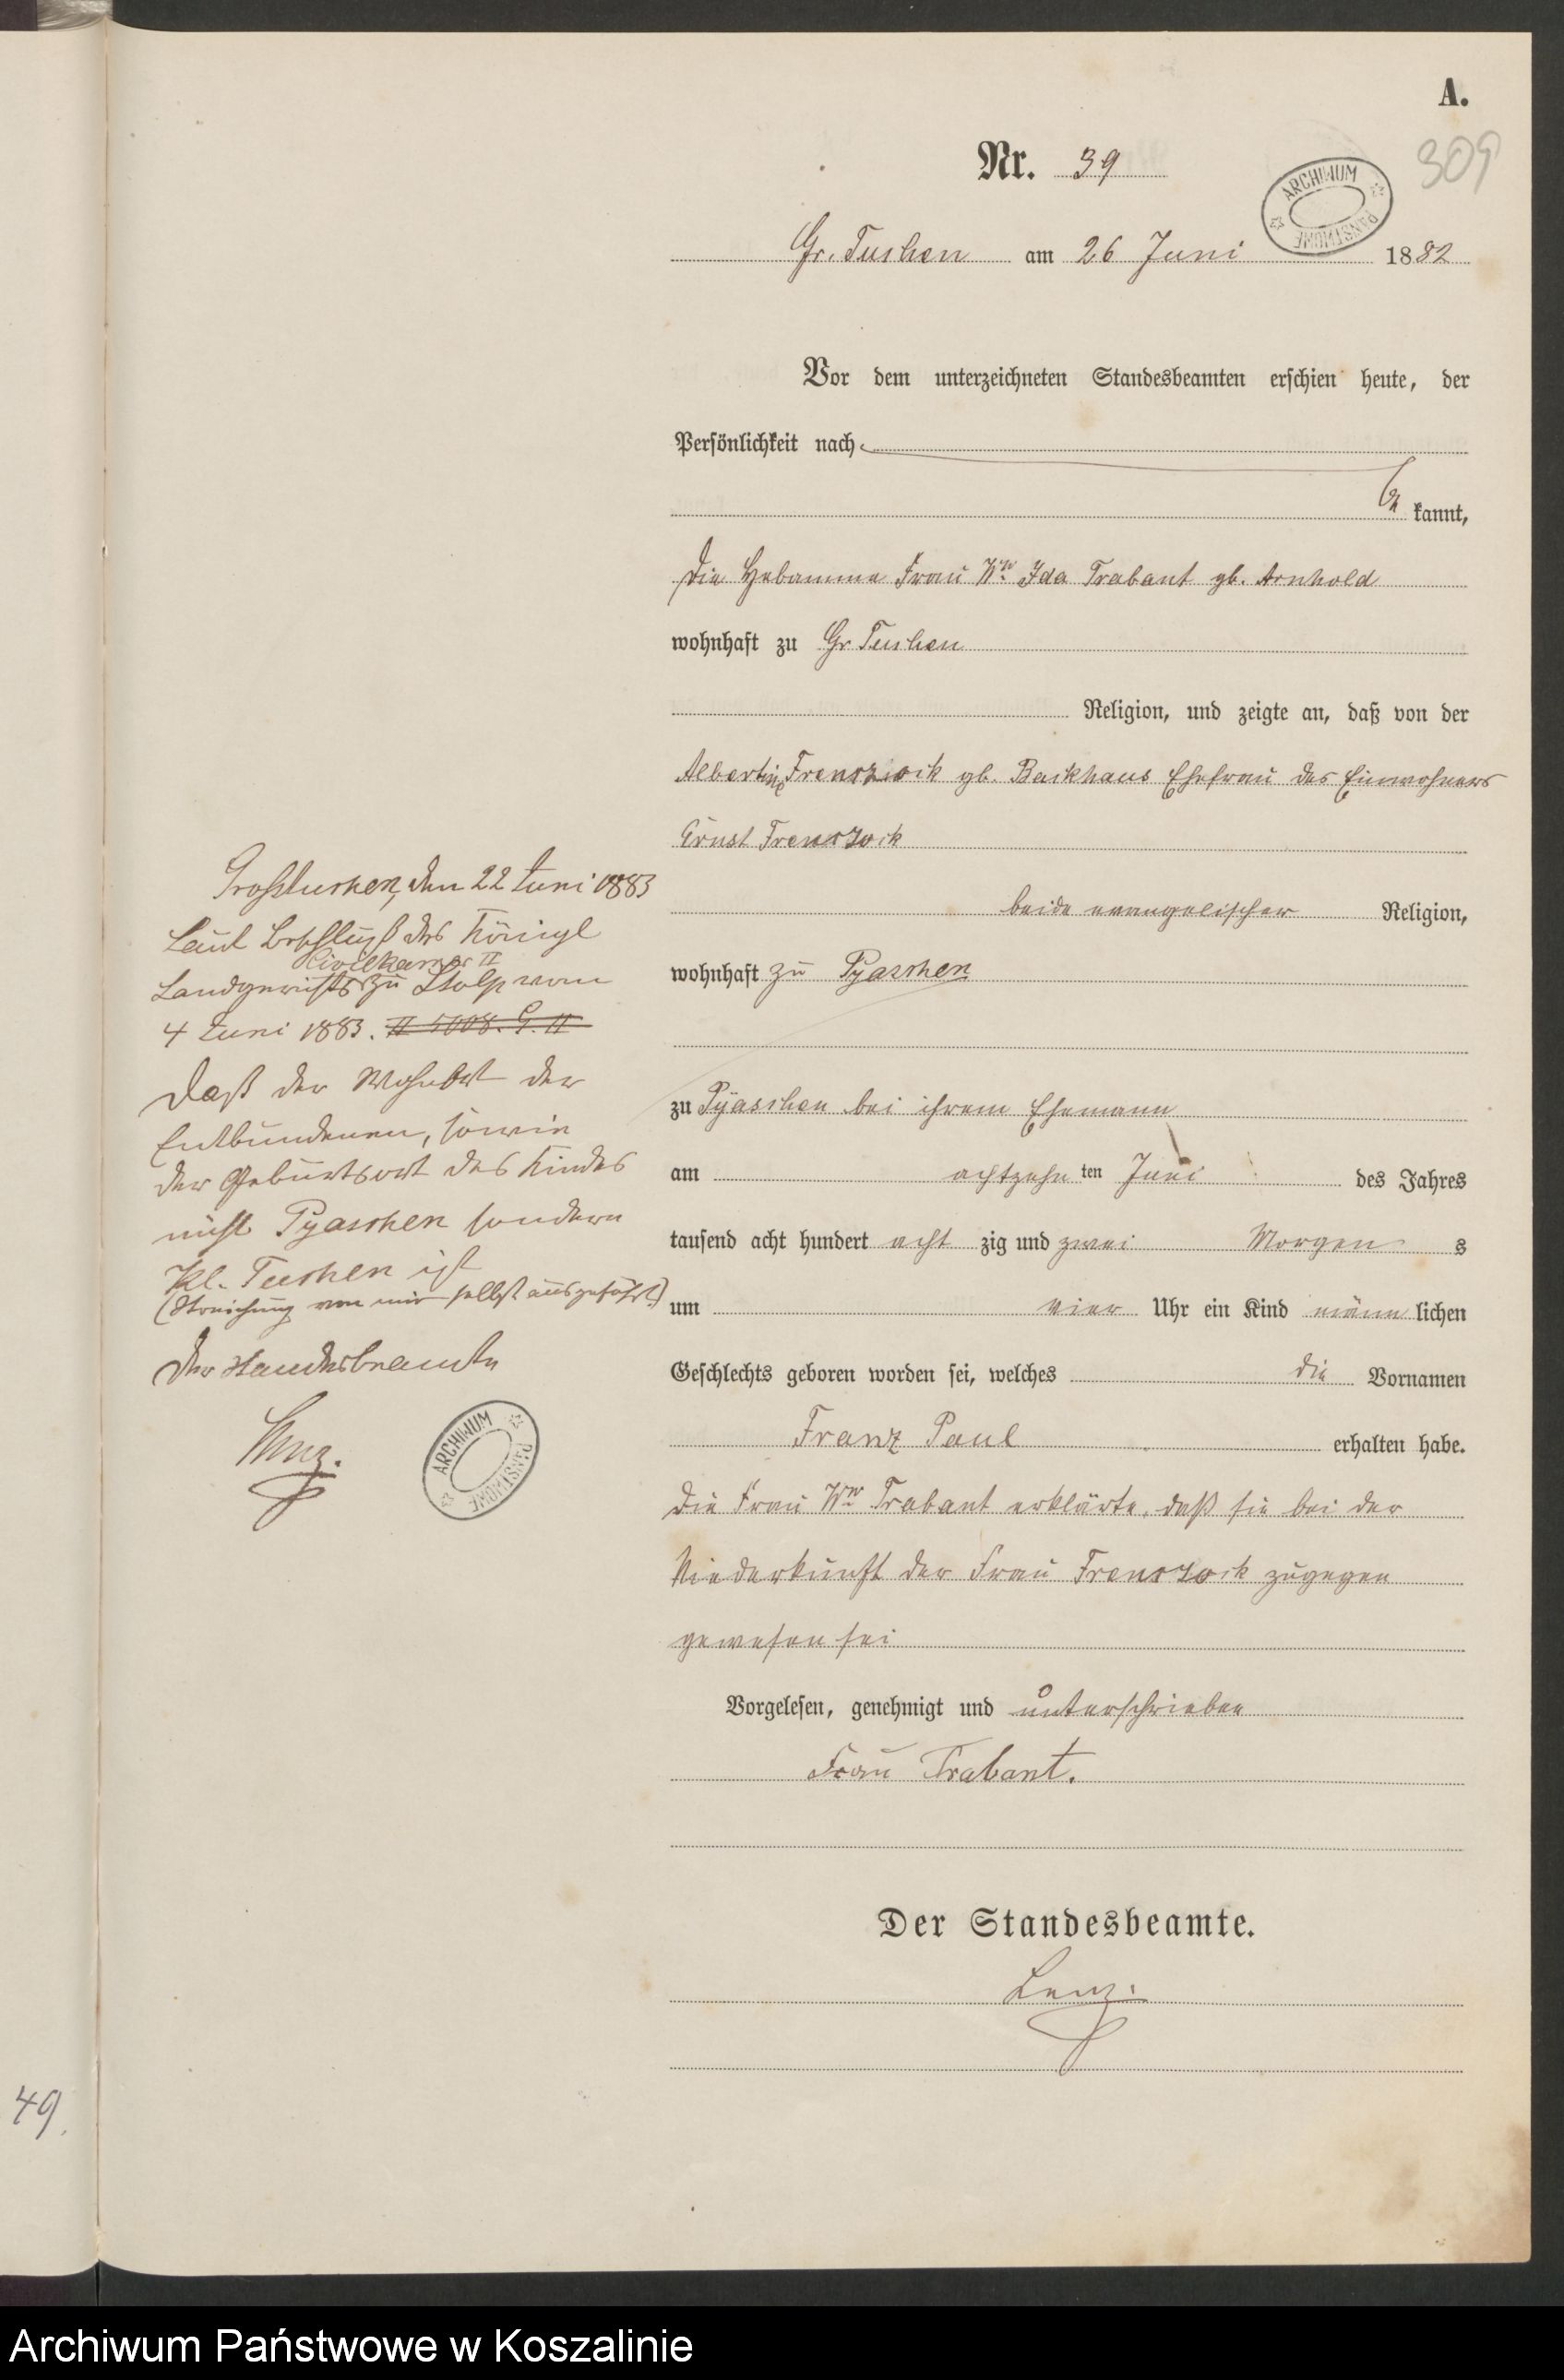 A.
309
Nr. 39
ARCHIWUM PAŃSTWOWE
Gr. Tuchen am 26 Juni 1882
Vor dem unterzeichneten Standesbeamten erschien heute, der
Persönlichkeit nach
be kannt,
die Hebamme Frau Ww Ida Trabant gb. Arnhold
wohnhaft zu Gr Tuchen
Religion, und zeigte an, daß von der
Albertine gb. Backhaus Ehefrau des Einwohners
Ernst
beide evangelischer Religion,
wohnhaft zu Pyaschen
zu Pyaschen bei ihrem Ehemann
am achtzehn ten Juni des Jahres
tausend acht hundert acht zig und zwei Morgen s
um vier Uhr ein Kind männ lichen
Geschlechts geboren worden sei, welches die Vornamen
Franz Paul erhalten habe.
Die Frau Ww Trabant erklärte, daß sie bei der
Niederkunft der Frau zugegen
gewesen sei
Vorgelesen, genehmigt und unterschrieben
Frau Trabant.
Der Standesbeamte.
Lenz.
Großtuchen, den 22 Juni 1883
Laut Beschluß des Königl
Civilkamer II
Landgerichts zu Stolp vom
4 Juni 1883.
daß der Wohnort der
Entbundenen, sowie
der Geburtsort des Kindes
nicht Pyaschen sondern
Kl. Tuchen ist
(Streichung von mir selbst ausgeführt)
Der Standesbeamte
Lenz.
ARCHIWUM PAŃSTWOWE
49.
Archiwum Państwowe w Koszalinie